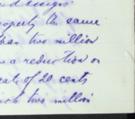 property the same
than two million
a reduction on
rate of 20 cents
two million